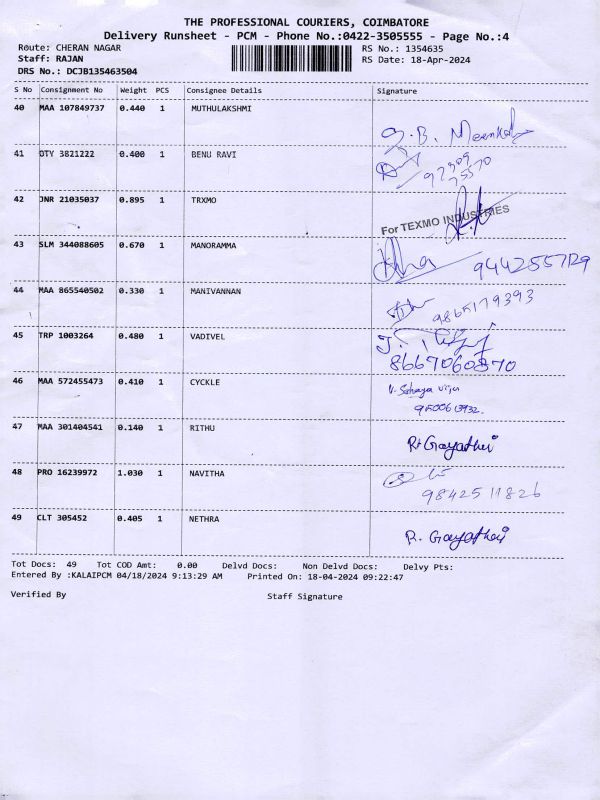 THE PROFESSIONAL COURIERS, COIMBATORE
Delivery Runsheet - PCM - Phone No.:0422-3505555 - Page No.:4
Route: CHERAN NAGAR
RS No.: 1354635
Staff: RAJAN
RS Date: 18-Apr-2024
DRS No.: DCJB135463504
S No Consignment No Weight PCS Consignee Details Signature
40 MAA 107849737 0.440 1 MUTHULAKSHMI
41 OTY 3821222 0.400 1 BENU RAVI
42 JNR 21035037 0.895 1 TRXMO For TEXMO INDUSTRIES
43 SLM 344088605 0.670 1 MANORAMMA
44 MAA 865540502 0.330 1 MANIVANNAN 9865179393
45 TRP 1003264 0.480 1 VADIVEL
8667060870
46 MAA 572455473 0.410 1 CYCKLE
47 MAA 301404541 0.140 1 RITHU
48 PRO 16239972 1.030 1 NAVITHA
9842511826
49 CLT 305452 0.405 1 NETHRA
R. Gayathri
Tot Docs: 49 Tot COD Amt: 0.00 Delvd Docs: Non Delvd Docs: Delvy Pts:
Entered By :KALAIPCM 04/18/2024 9:13:29 AM Printed On: 18-04-2024 09:22:47
Verified By Staff Signature